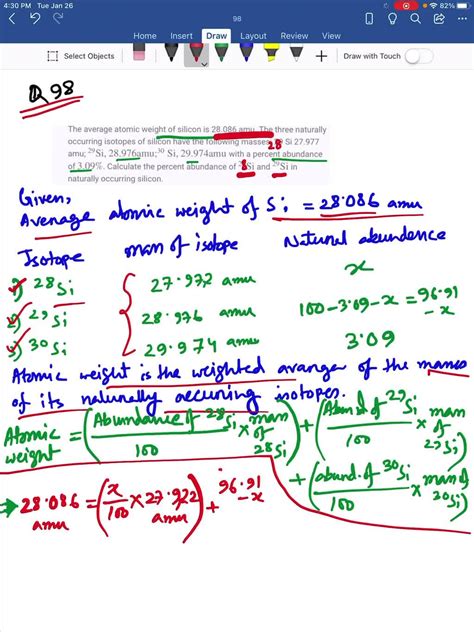 4:30 PM Tue Jan 26
82%
98
Home Insert Draw Layout Review View
Select Objects
Draw with Touch
Q 98
The average atomic weight of silicon is 28.086 amu. The three naturally
occurring isotopes of silicon have the following masses: Si 27.977
28
amu; 29Si, 28.976amu; 30 Si, 29.974amu with a percent abundance
of 3.09%. Calculate the percent abundance of Si and 29Si in
naturally occurring silicon.
Given,
Average atomic weight of Si = 28.086 amu
Isotope man of isotope Natural abundence
1) 28Si 27.972 amu x
2) 29Si 28.976 amu 100-3.09-x = 96.91 - x
3) 30Si 29.974 amu 3.09
Atomic weight is the weighted avarager of the manes
of its naturally accuning isotopes.
Atomic weight = (Abundance of 28Si / 100 x man of 28Si) + (Abund. of 29Si / 100 x man of 29Si)
+ (abund. of 30Si / 100 x man of 30Si)
→ 28.086 amu = (x / 100 x 27.972 amu) + 96.91 - x